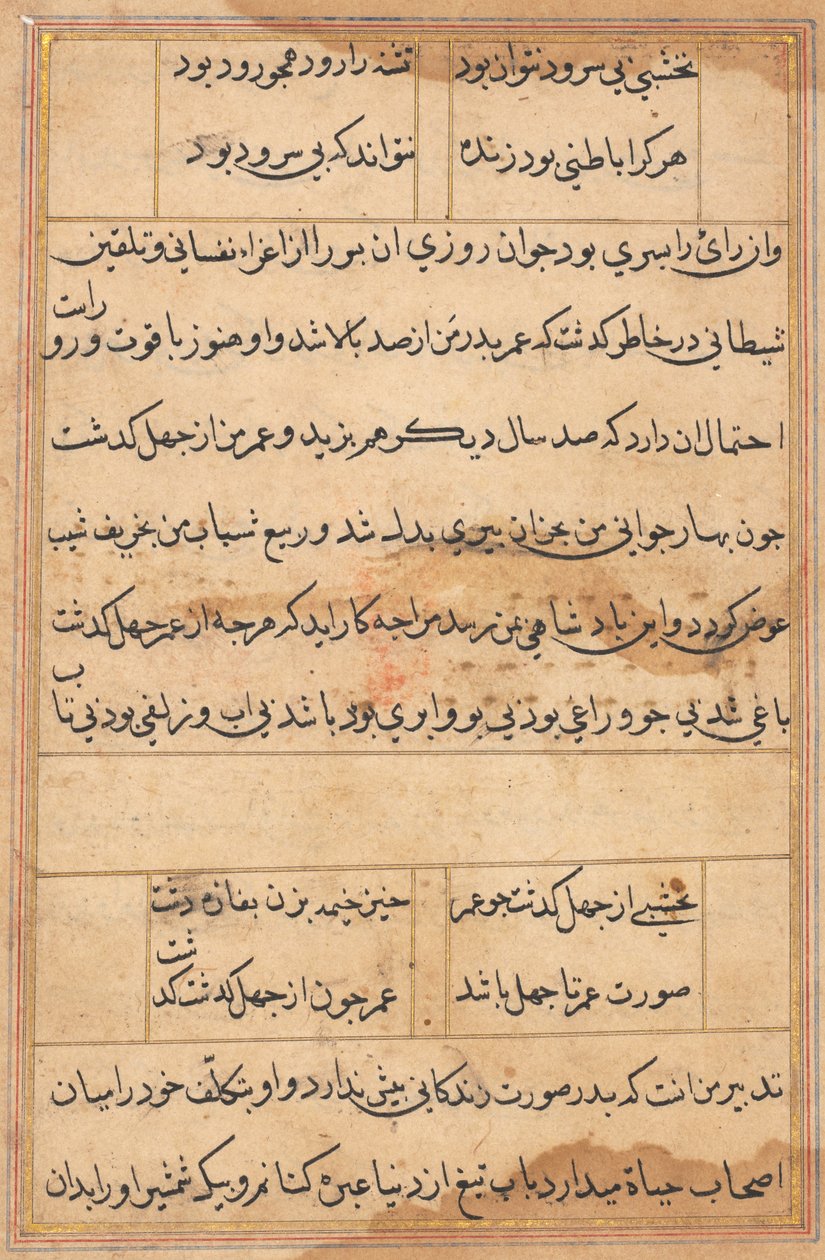 نخشبي بي سرود نتوان بود تشنه را رود همجو رود بود
هر كرا باطني بود زنده نتواند كه بي سرود بود
وان راى را بسري بود جوان روزي ان بور را از اغراء نفساني و تلقين
شيطاني در خاطر كدشت كه عمر بدر من از صد بالا شد و او هنوز با قوت و رو راست
احتمال ان دارد كه صد سال ديكر هم بزيد و عمر من از جهل كدشت
جون بهار جواني من بخزان بيري بدل شد و ربيع شباب من بخريف شيب
عوض كردد و اين بادشاهي بمن رسد مرا جه كار ايد كه هرجه از عمر جهل كدشت
باغي شد بي جو و راغي بود بي بو و ابري بود باشد بي اب و زلفي بود بي تاب
نخشبي از جهل كدشت جو عمر خيز خيمه بزن بغازه دشت
صورت عمر تا جهل باشد عمر جون از جهل كدشت كدشت
تدبير من انست كه بدر صورت زندكاني بيش ندارد و او بتكلّف خود را ميان
اصحاب حياة ميدارد باب تيغ از دنيا عبره كنانم و بيك شمشير او را بدان